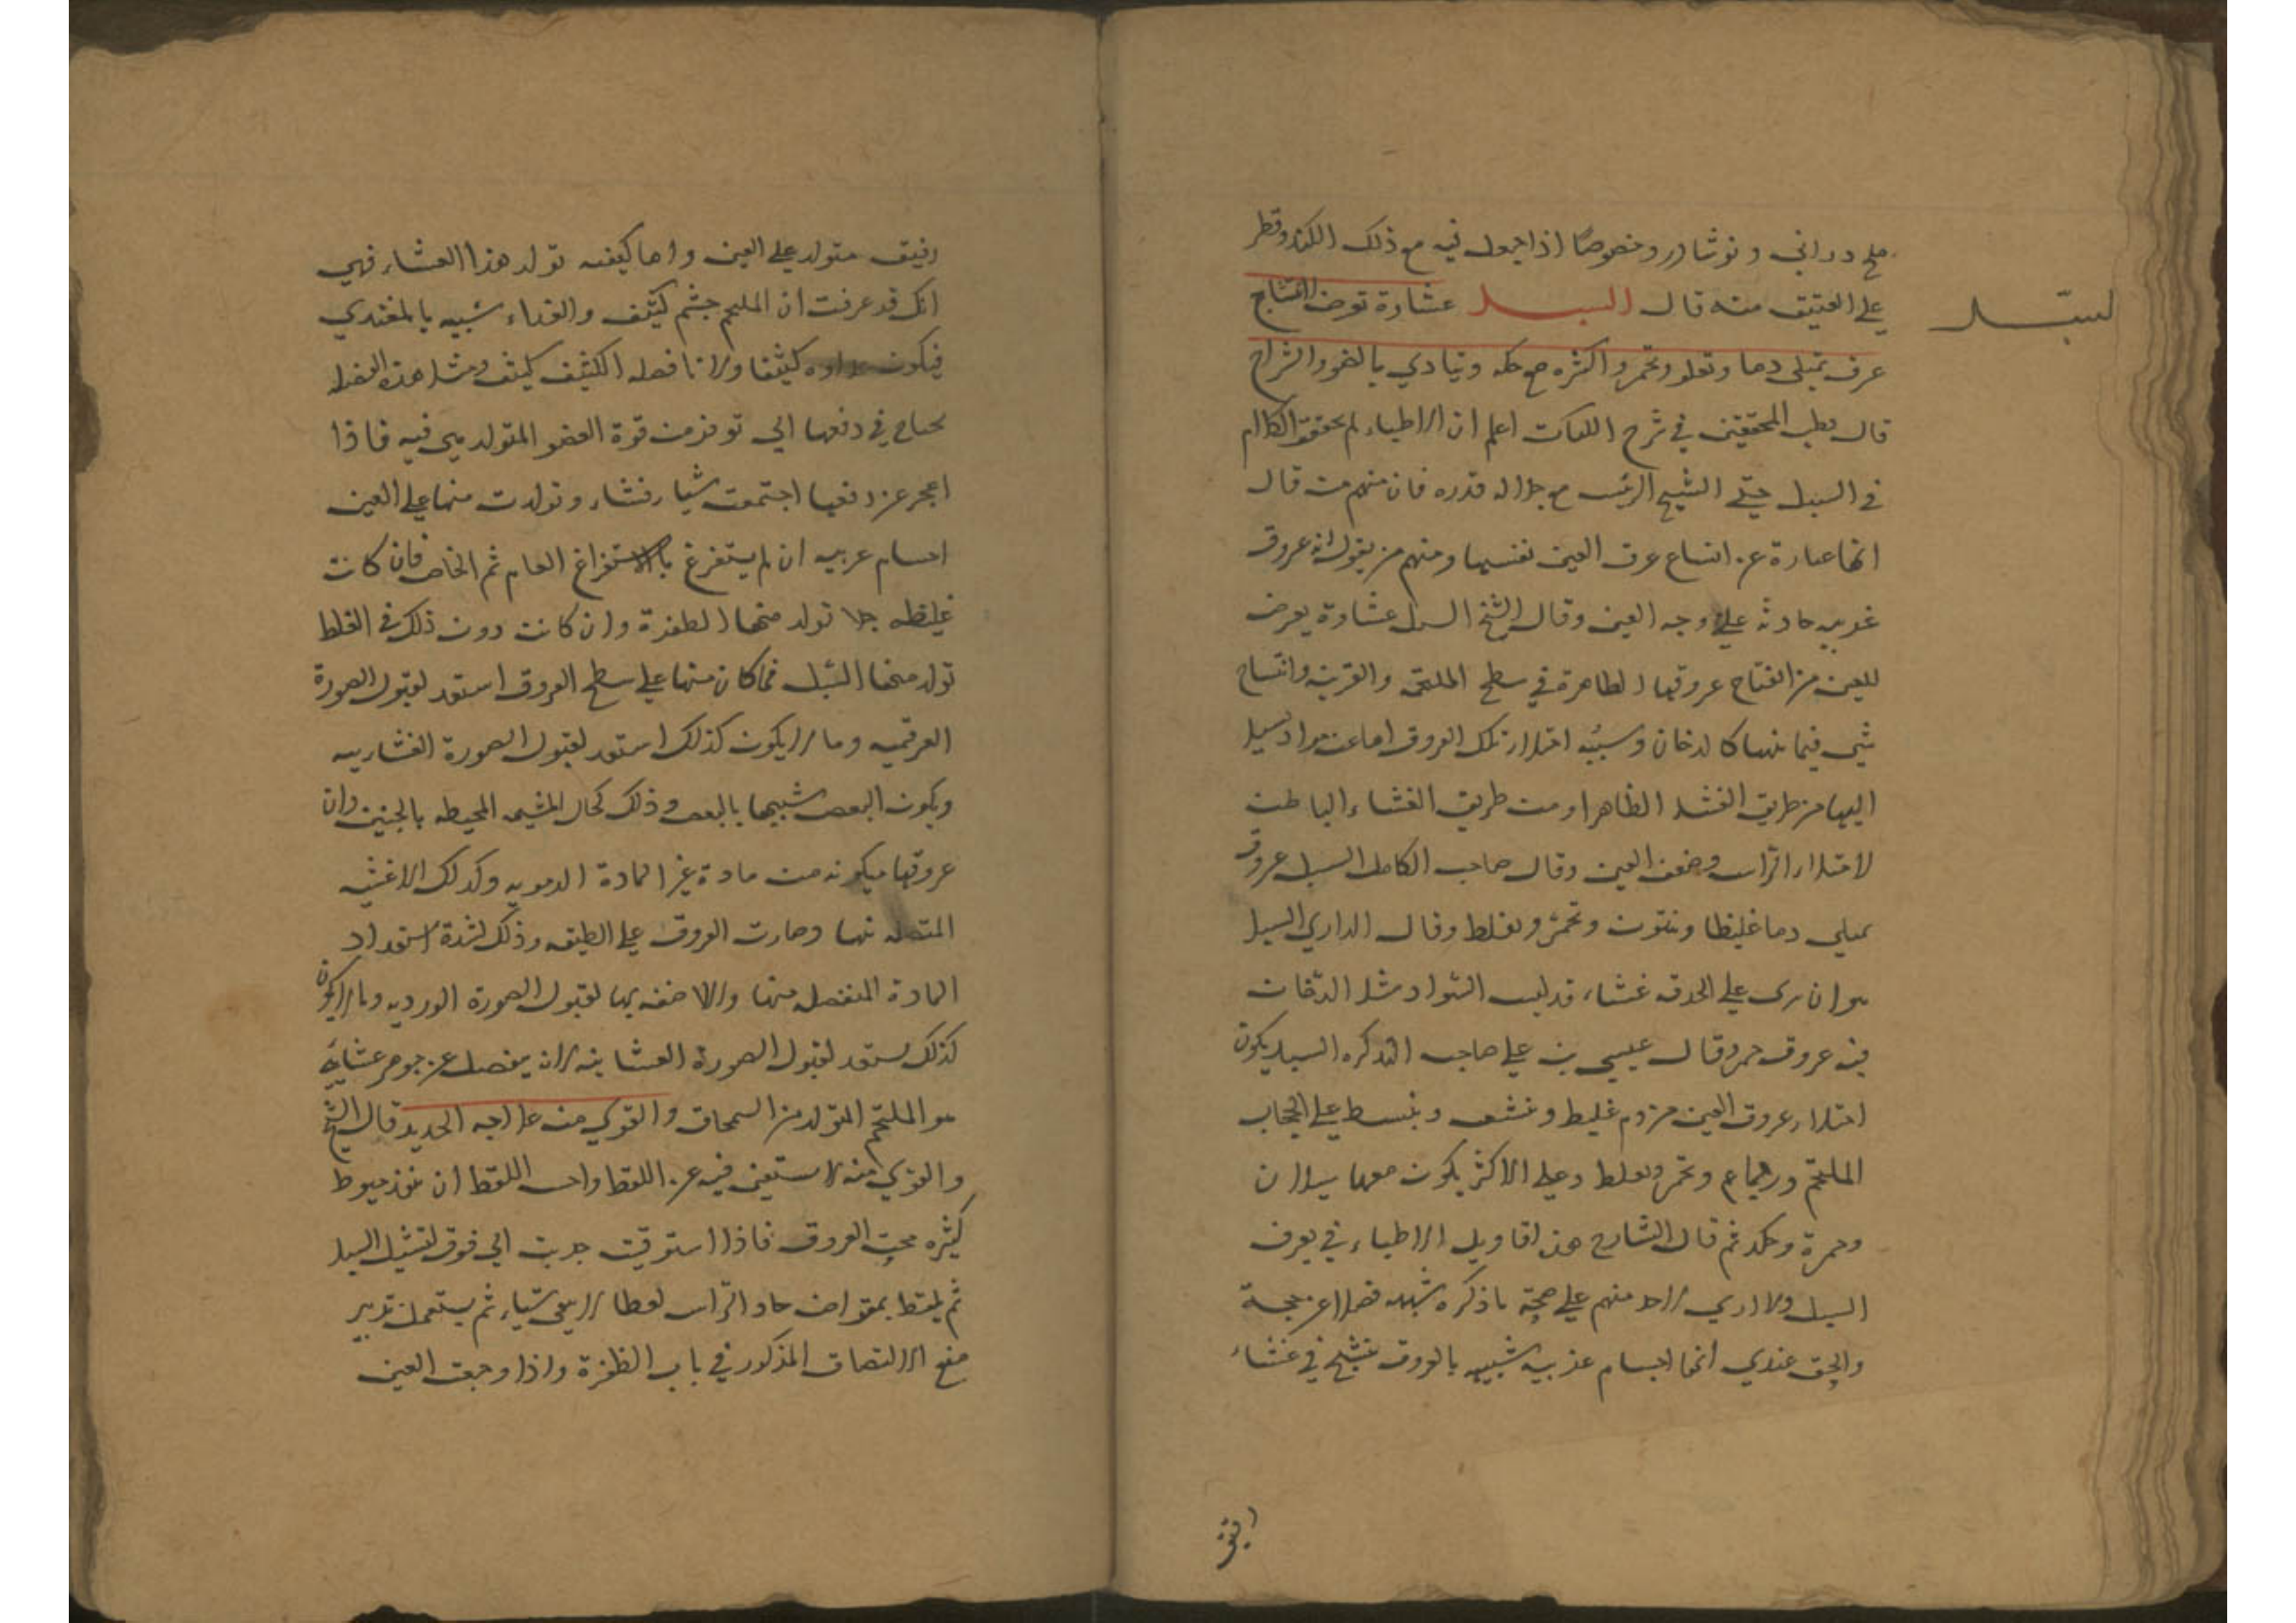 ملح دراني ونوشادر وخصوصًا اذا جعل فيه مع ذلك الكندر وقطر
السبل
على العتيق منه قال السبل غشاوة تعرض لانتفاخ
عرق تمتلى دما وتغلو وتحمر واكثره مع حكه ويتأدي بالضو والسراج
قال قطب المحققين في شرح الكليات اعلم ان الاطباء لم يحققوا الكلام
في السبل حتى الشيخ الرئيس مع جلاله قدره فان منهم من قال
انها عبارة عن اتساع عروق العين نفسها ومنهم من يقول انه عروق
غريبه حادثه على وجه العين وقال الشيخ السبل غشاوة يعرض
للعين من انتفاخ عروقها الظاهرة في سطح الملتحمه والقرنيه وانتساج
شي فيما بينها كالدخان وسببه امتلاء تلك العروق اما عن مواد تسيل
اليها من طريق الغشاء الظاهر او من طريق الغشاء الباطن
لامتلاء الراس وضعف العين وقال صاحب الكامل السبل عروق
تمتلي دما غليظا وتنتوء وتحمر وتغلظ وقال الرازي السبل
هو ان يرى على الحدقه غشاء قد لبس السواد مثل الدخان
فيه عروق حمر وقال عيسى بن علي صاحب التذكره السبل يكون
امتلاء عروق العين من دم غليظ وينبسط على الحجاب
الملتحم وتحمر وتغلظ وعلى الاكثر يكون معها سيلان
وحمرة وحكه ثم قال الشارح هذه اقاويل الاطباء في تعريف
السبل ولا ادري لاحد منهم على صحة ما ذكره شبهه فضلا عن حجة
والحق عندي انها اجسام غريبه شبيهه بالعروق تنتسج في غشاء
رقيق
رقيق متولد على العين واما كيفيه تولد هذا الغشاء فهي
انك قد عرفت ان الملتحم جسم كثيف والغداء شبيه بالمغتدي
فيكون غداوه كثيفا ولان فضله الكثيف كثيف ومثل هذه الفضله
تحتاج في دفعها الى توفر من قوة العضو المتولد هي فيه فاذا
اعجز عن دفعها اجتمعت شيا فشاء وتولدت منها على العين
اجسام غريبه ان لم يستفرغ بالاستفراغ العام ثم الخاص فان كانت
غليظه جدا تولد منها الظفرة وان كانت دون ذلك في الغلظ
تولد منها السبل فما كان منها على سطح العروق استعد لقبول الصورة
العرقيه وما لا يكون كذلك استعد لقبول الصورة الغشاييه
ويكون البعض شبيها بالبعض وذلك كحال المشيمه المحيطه بالجنين وان
عروقها متكونه من مادة غير المادة الدمويه وكذلك الاغشيه
المتصله بها وصارت العروق على الطبقه وذلك لشدة استعداد
المادة المنفصله منها والاضفه بها لقبول الصورة الورديه وما لا يكون
كذلك يستعد لقبول الصورة الغشاييه لانه ينفصل عن جوهر غشاييه
هو الملتحم المتولد من السمحاق والقوي منه علاجه الحديد قال الشيخ
والقوي منه لا يستغنى فيه عن اللقط واحسن اللقط ان ينفذ خيوط
كثيره تحت العروق فاذا استوفيت جذبت الى فوق لتشيل السبل
ثم يلقط بمقراض حاد الراس لقطا لا يبقى شياء ثم يستعمل تدبير
منع الالتصاق المذكور في باب الظفرة واذا وجعت العين